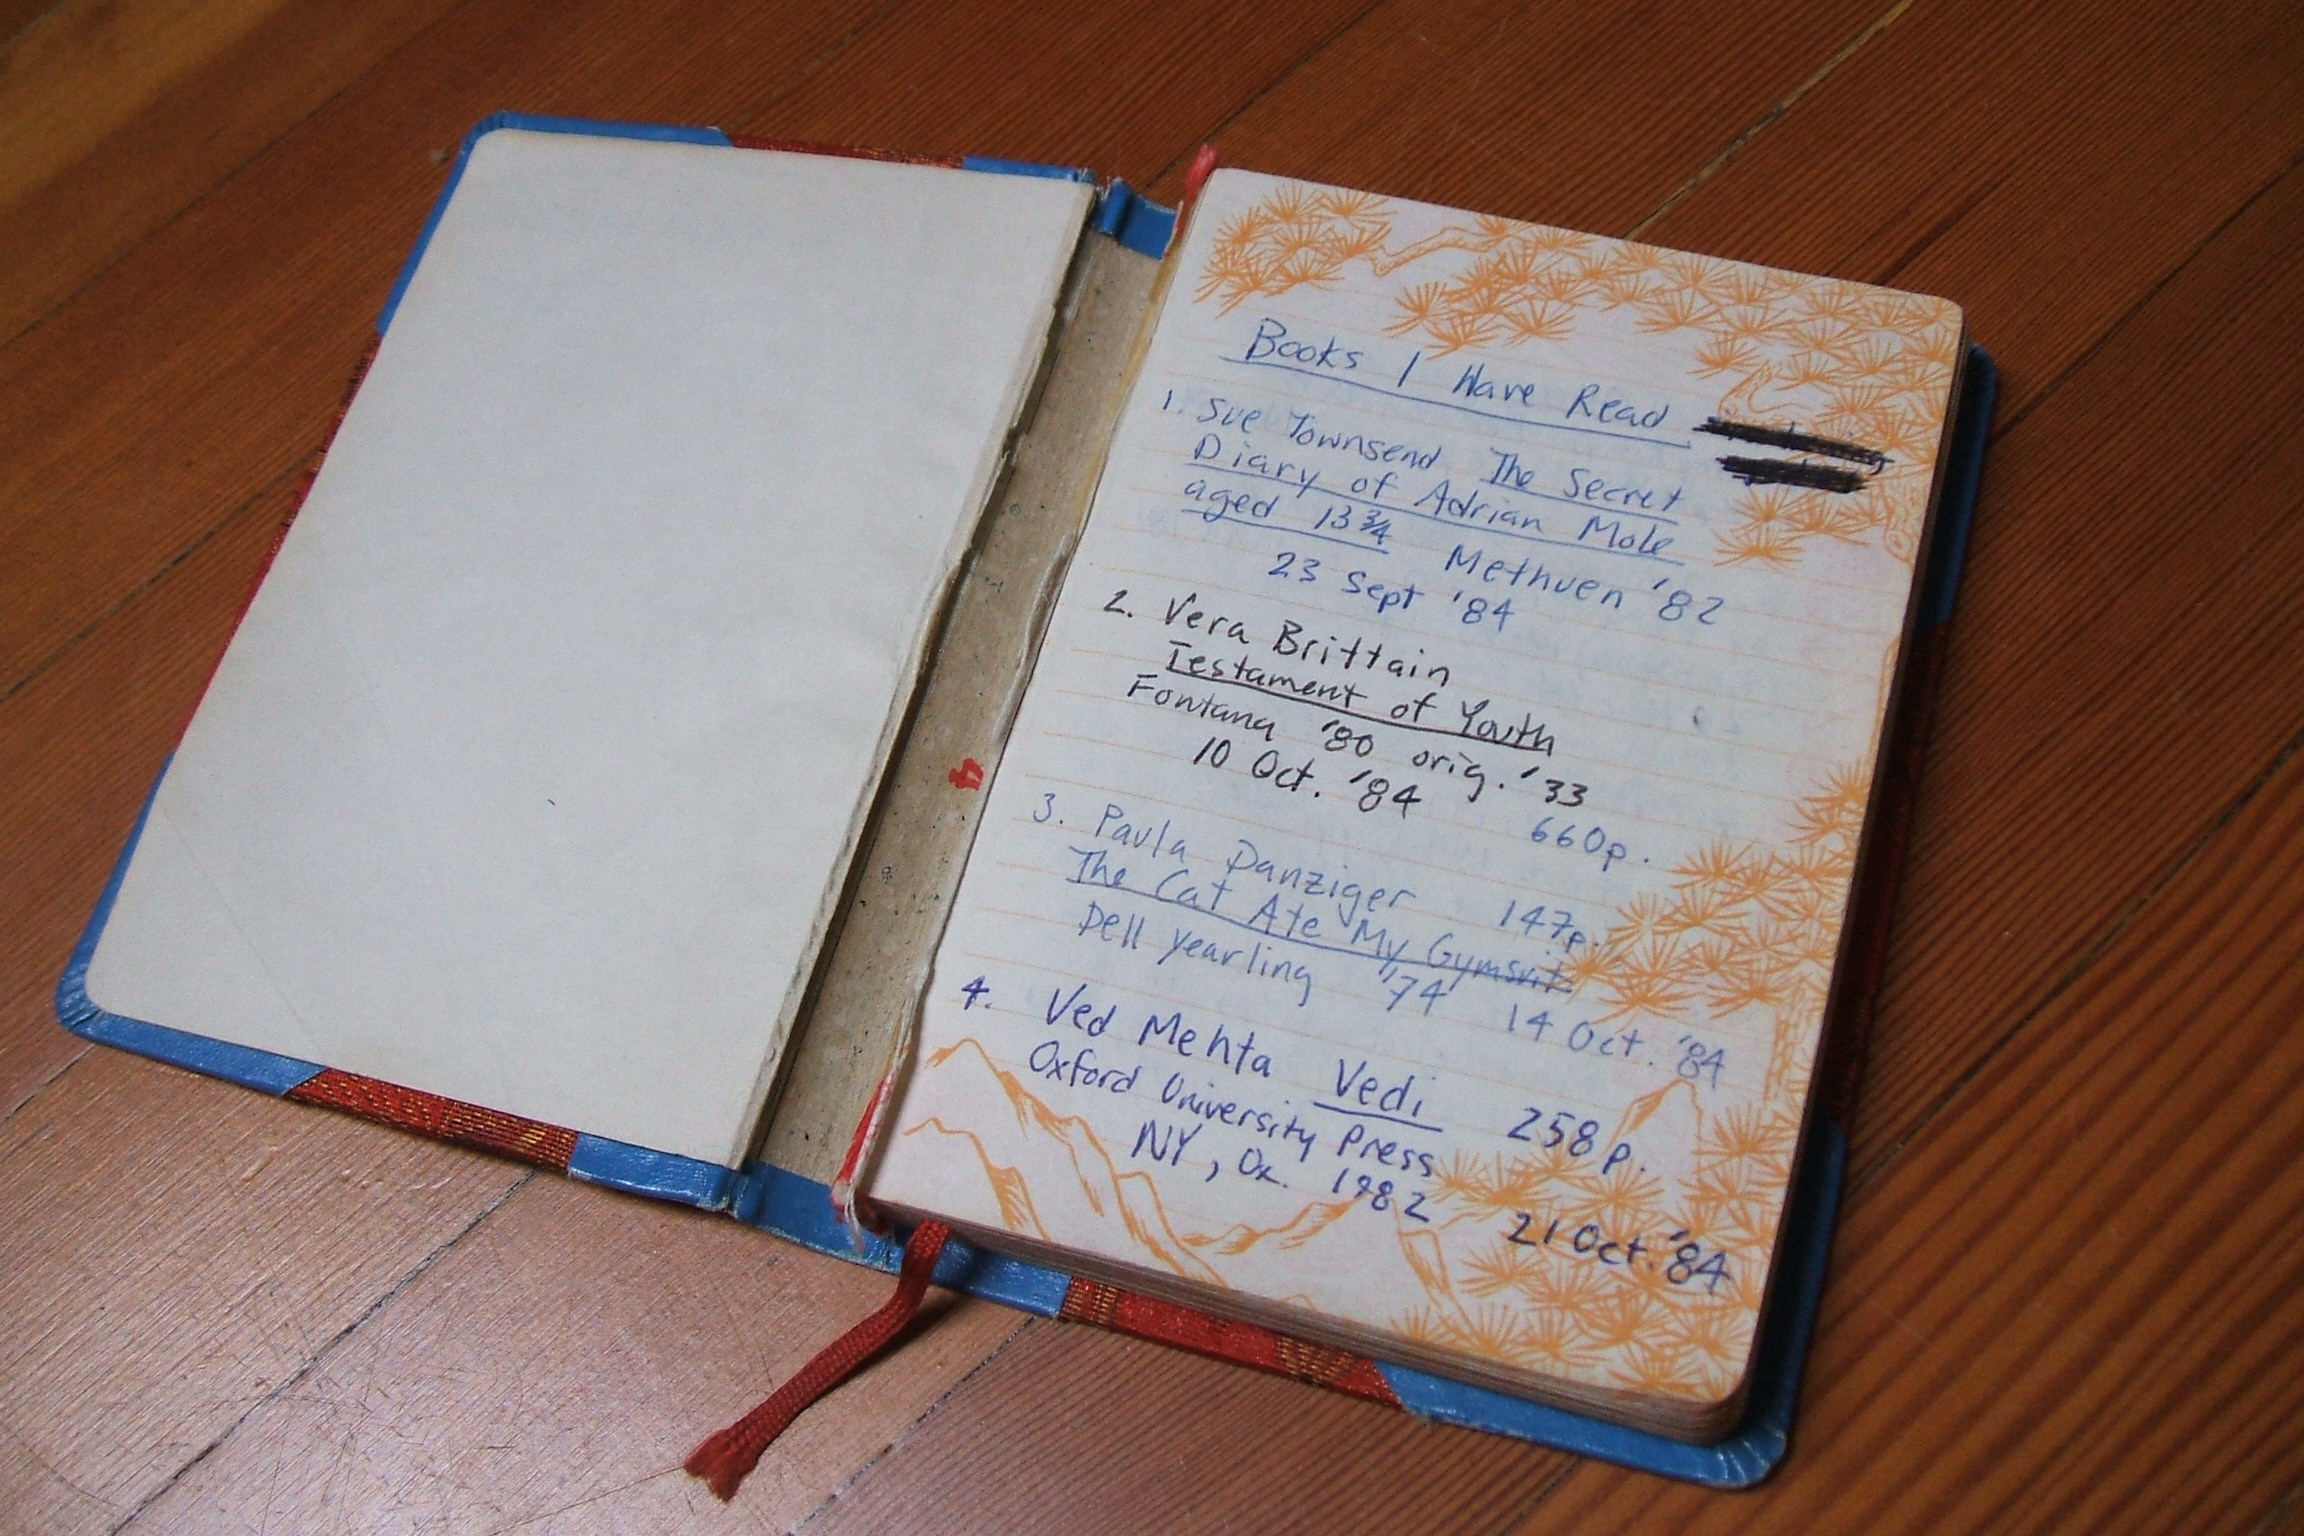 4
Books I Have Read
1. Sue Townsend The Secret
Diary of Adrian Mole
aged 13 3/4 Methuen '82
23 Sept '84
2. Vera Brittain
Testament of Youth
Fontana '80 orig. '33
10 Oct. '84
660p.
3. Paula Danziger 147p.
The Cat Ate My Gymsuit
Dell yearling '74 14 Oct. '84
4. Ved Mehta Vedi 258p.
Oxford University Press
NY, Ox. 1982 21 Oct. '84